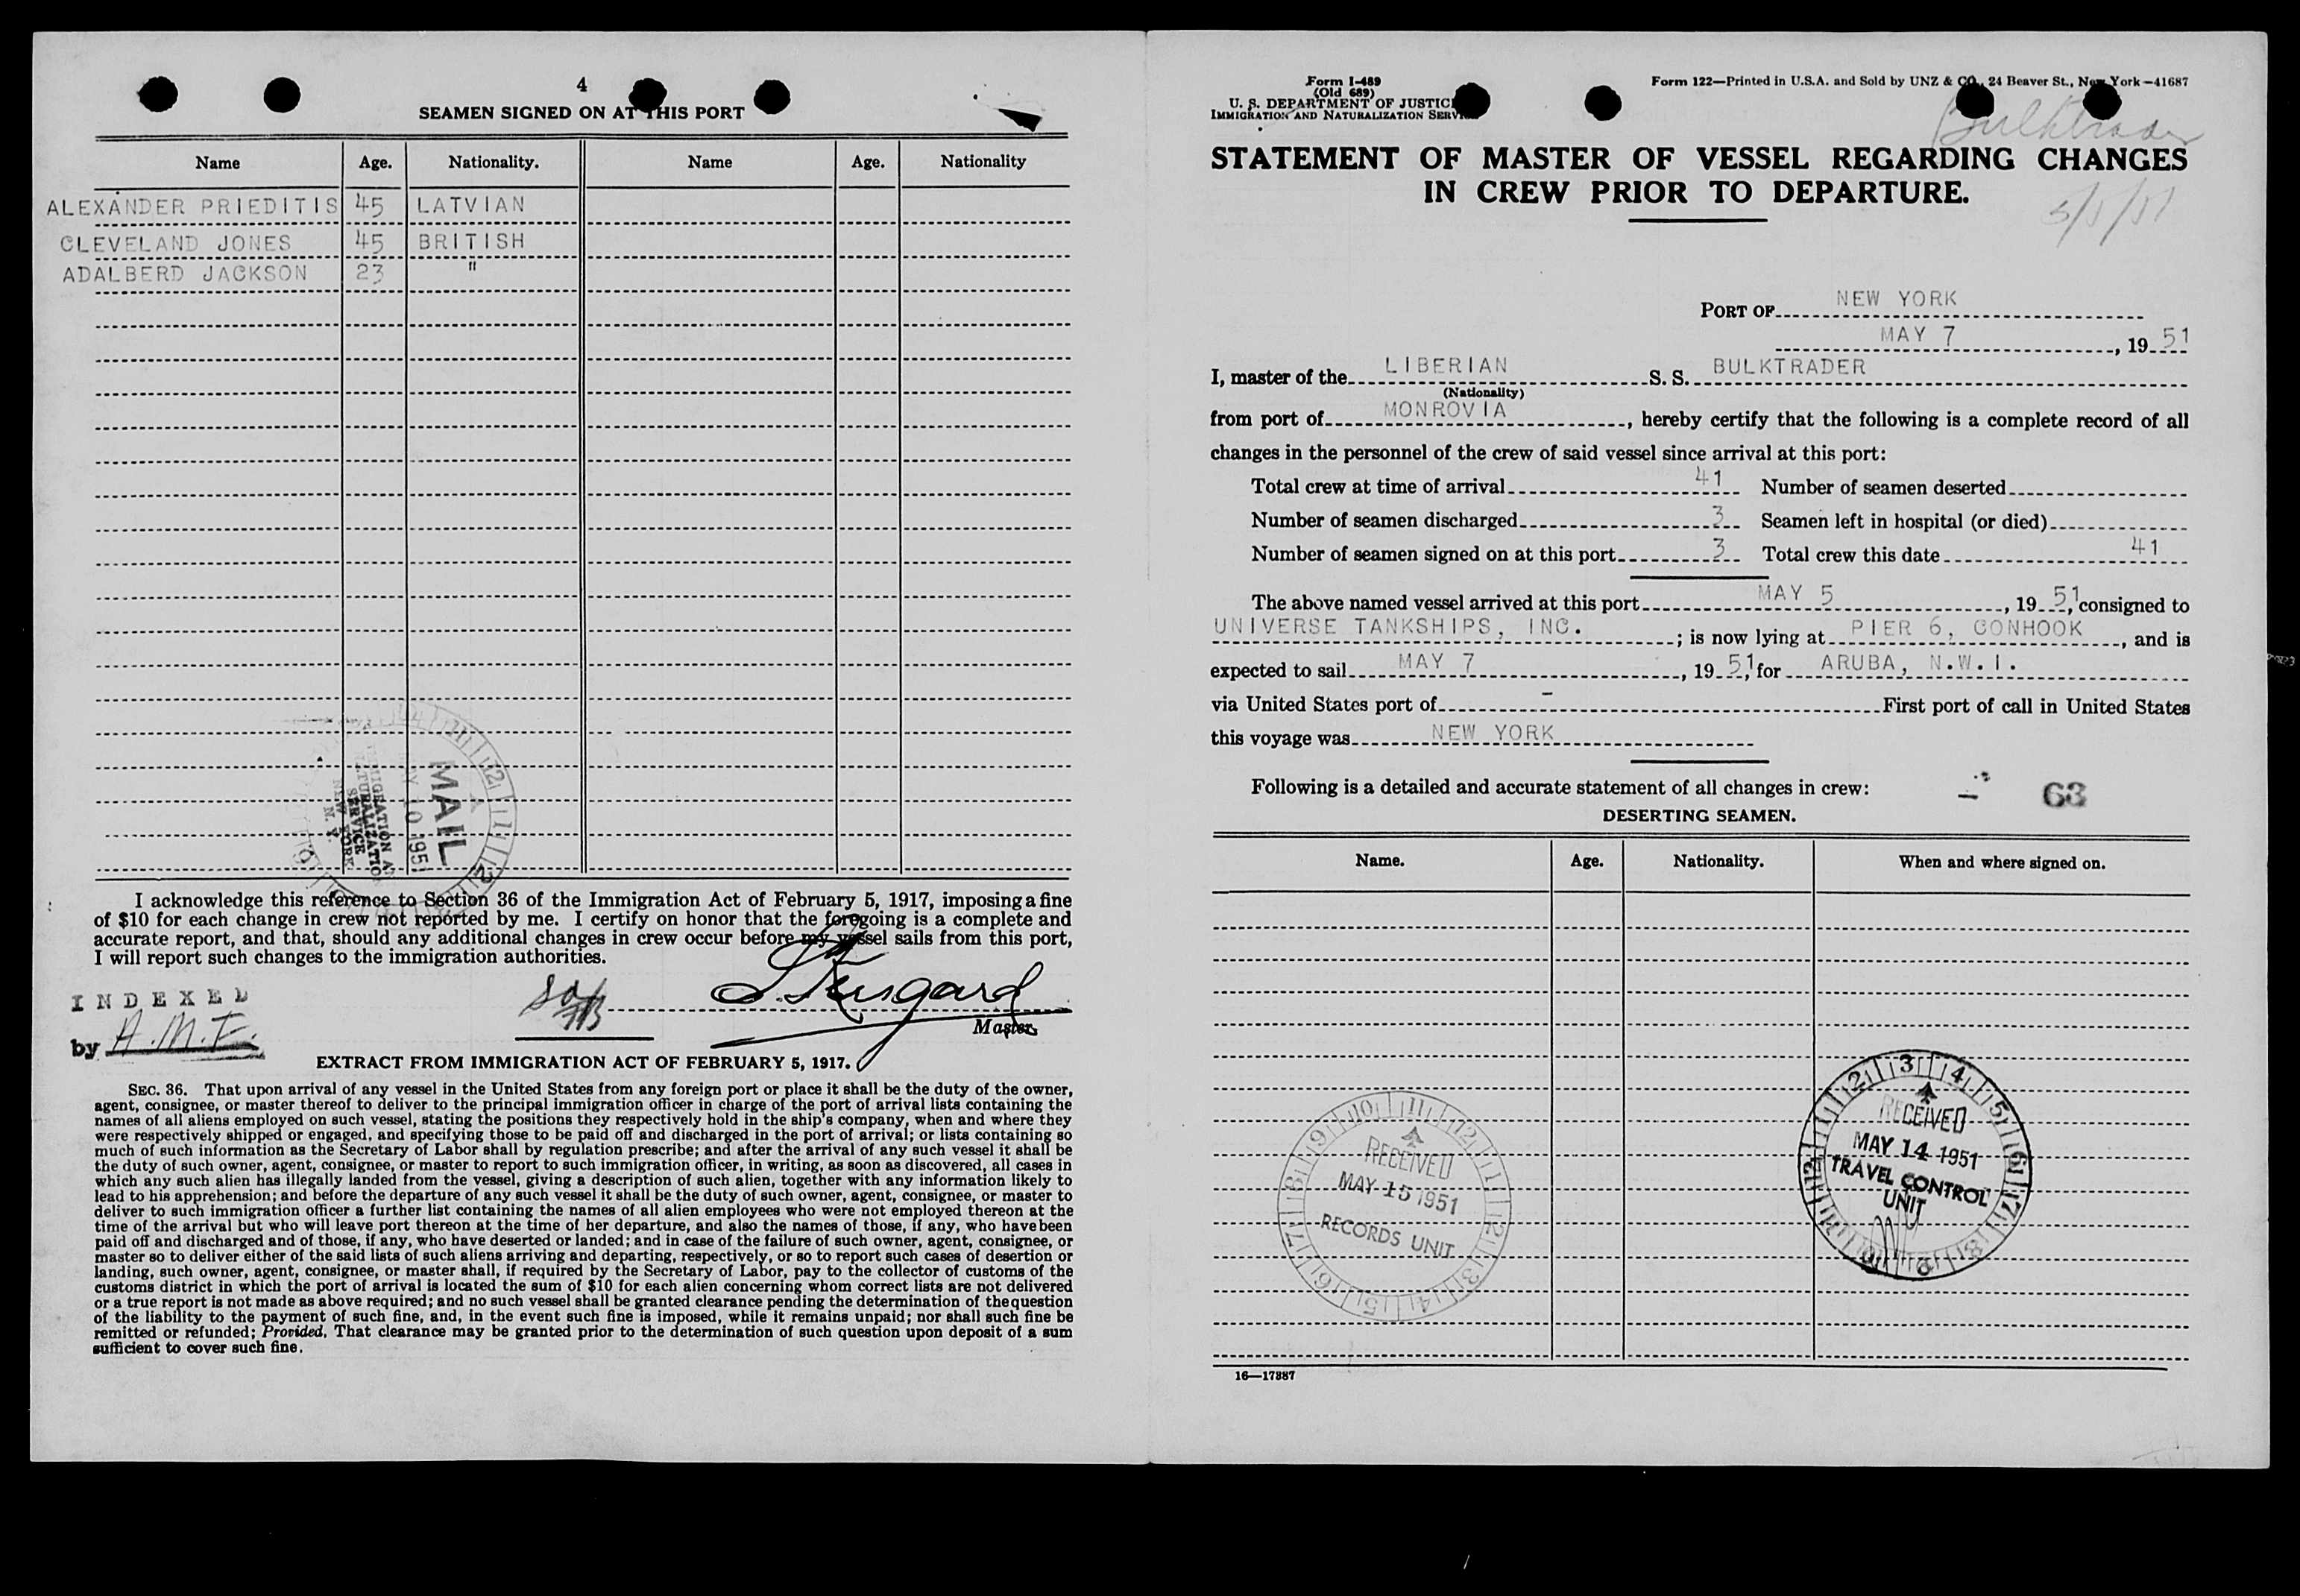 4
SEAMEN SIGNED ON AT THIS PORT
Name Age. Nationality. Name Age. Nationality
ALEXANDER PRIEDITIS 45 LATVIAN
CLEVELAND JONES 45 BRITISH
ADALBERD JACKSON 23 "
MAIL
MAY 10 195
IMMIGRATION A
NATURALIZATIO
SERVICE
NEW YORK
N. Y.
I acknowledge this reference to Section 36 of the Immigration Act of February 5, 1917, imposing a fine
of $10 for each change in crew not reported by me. I certify on honor that the foregoing is a complete and
accurate report, and that, should any additional changes in crew occur before my vessel sails from this port,
I will report such changes to the immigration authorities.
INDEXED
by A.M.F.
Master.
EXTRACT FROM IMMIGRATION ACT OF FEBRUARY 5, 1917.
SEC. 36. That upon arrival of any vessel in the United States from any foreign port or place it shall be the duty of the owner,
agent, consignee, or master thereof to deliver to the principal immigration officer in charge of the port of arrival lists containing the
names of all aliens employed on such vessel, stating the positions they respectively hold in the ship's company, when and where they
were respectively shipped or engaged, and specifying those to be paid off and discharged in the port of arrival; or lists containing so
much of such information as the Secretary of Labor shall by regulation prescribe; and after the arrival of any such vessel it shall be
the duty of such owner, agent, consignee, or master to report to such immigration officer, in writing, as soon as discovered, all cases in
which any such alien has illegally landed from the vessel, giving a description of such alien, together with any information likely to
lead to his apprehension; and before the departure of any such vessel it shall be the duty of such owner, agent, consignee, or master to
deliver to such immigration officer a further list containing the names of all alien employees who were not employed thereon at the
time of the arrival but who will leave port thereon at the time of her departure, and also the names of those, if any, who have been
paid off and discharged and of those, if any, who have deserted or landed; and in case of the failure of such owner, agent, consignee, or
master so to deliver either of the said lists of such aliens arriving and departing, respectively, or so to report such cases of desertion or
landing, such owner, agent, consignee, or master shall, if required by the Secretary of Labor, pay to the collector of customs of the
customs district in which the port of arrival is located the sum of $10 for each alien concerning whom correct lists are not delivered
or a true report is not made as above required; and no such vessel shall be granted clearance pending the determination of the question
of the liability to the payment of such fine, and, in the event such fine is imposed, while it remains unpaid; nor shall such fine be
remitted or refunded; Provided, That clearance may be granted prior to the determination of such question upon deposit of a sum
sufficient to cover such fine.
Form I-489
(Old 689)
U. S. DEPARTMENT OF JUSTICE
IMMIGRATION AND NATURALIZATION SERVICE
Form 122—Printed in U.S.A. and Sold by UNZ & CO., 24 Beaver St., New York—41687
Bulktrader
STATEMENT OF MASTER OF VESSEL REGARDING CHANGES
IN CREW PRIOR TO DEPARTURE.
PORT OF NEW YORK
MAY 7, 1951
I, master of the LIBERIAN S. S. BULKTRADER
(Nationality)
from port of MONROVIA, hereby certify that the following is a complete record of all
changes in the personnel of the crew of said vessel since arrival at this port:
Total crew at time of arrival 41 Number of seamen deserted
Number of seamen discharged 3 Seamen left in hospital (or died)
Number of seamen signed on at this port 3 Total crew this date 41
The above named vessel arrived at this port MAY 5, 1951, consigned to
UNIVERSE TANKSHIPS, INC.; is now lying at PIER 6, CONHOOK, and is
expected to sail MAY 7, 1951, for ARUBA, N.W.I.
via United States port of - First port of call in United States
this voyage was NEW YORK
Following is a detailed and accurate statement of all changes in crew:
63
DESERTING SEAMEN.
Name. Age. Nationality. When and where signed on.
RECEIVED
MAY 14 1951
TRAVEL CONTROL
UNIT
RECEIVED
MAY 15 1951
RECORDS UNIT
16—17887